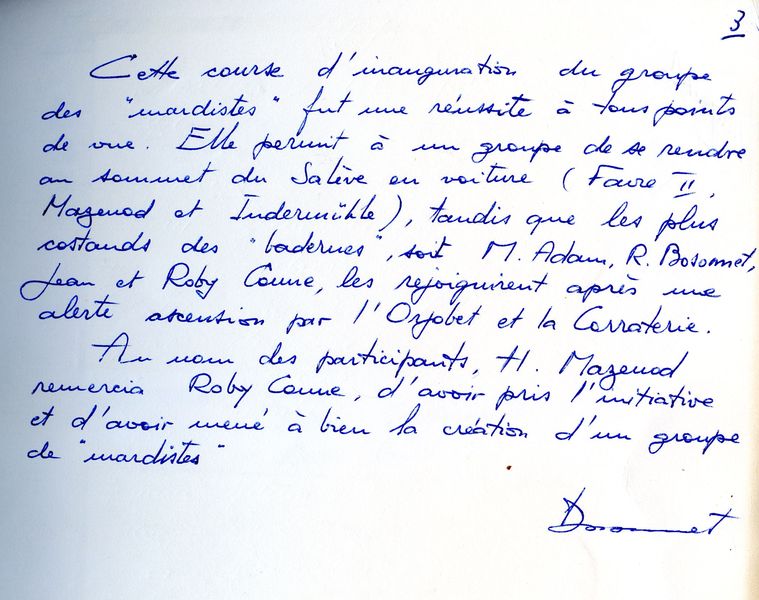 3
Cette course d'inauguration du groupe
des "mardistes" fut une réussite à tous points
de vue. Elle permit à un groupe de se rendre
au sommet du Salève en voiture (Favre II,
Mazenod et Indermühle), tandis que les plus
costauds des "badernes", soit M. Adam, R. Bosonnet,
Jean et Roby Conne, les rejoignirent après une
alerte ascension par l'Orjobet et la Corraterie.
Au nom des participants, H. Mazenod
remercia Roby Conne, d'avoir pris l'initiative
et d'avoir mené à bien la création d'un groupe
de "mardistes"
Bosonnet